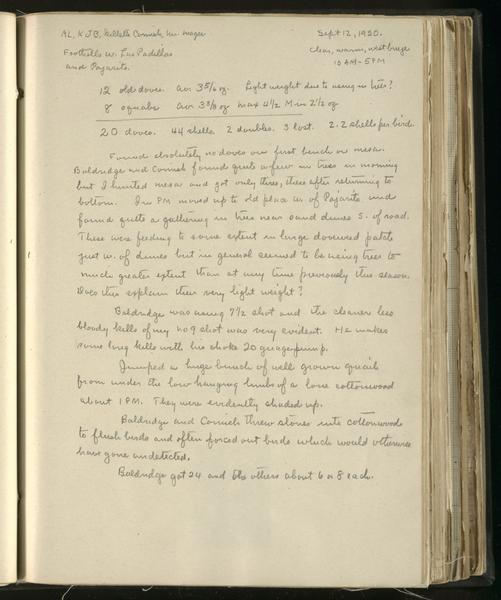 AL, KJB, Cornish, Mr. Mager
Sept 12, 1920.
Foothills w. Los Padillas
and Pajarito.
clear, warm, west breeze
10 AM - 5 PM
12 old doves. av. oz. Light weight due to using in trees?
8 squabs av. 3 3/8 oz max 4 1/2 Min 2 1/2 oz
20 doves. 44 shells. 2 doubles. 3 lost. 2.2 shells per bird.
Found absolutely no doves on first bench on mesa.
Baldridge and Cornish found quite a few in trees in morning
but I hunted mesa and got only three, these after returning to
bottom. In PM moved up to old place w. of Pajarito and
found quite a gathering in trees near sand dunes S. of road.
These were feeding to some extent in large doveweed patch
just w. of dunes but in general seemed to be using trees to
much greater extent than at any time previously this season.
Does this explain their very light weight?
Baldridge was using 7 1/2 shot and the cleaner less
bloody kills of my no 9 shot was very evident. He makes
some long kills with his choke 20 guage pump.
Jumped a huge bunch of well grown quail
from under the low hanging limbs of a lone cottonwood
about 1 PM. They were evidently shaded up.
Baldridge and Cornish threw stones into cottonwoods
to flush birds and often forced out birds which would otherwise
have gone undetected.
Baldridge got 24 and the others about 6 or 8 each.